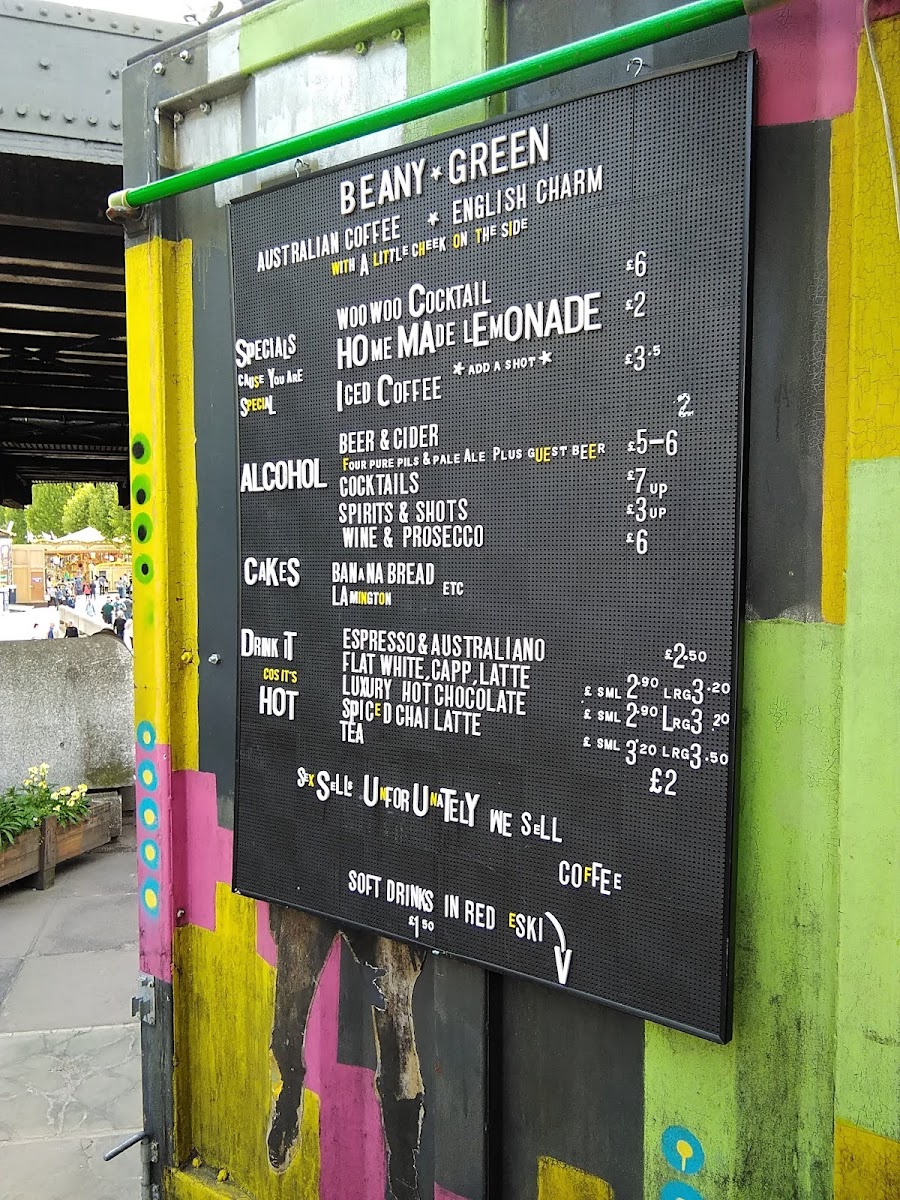 BEANY * GREEN
AUSTRALIAN COFFEE * ENGLISH CHARM
WITH A LITTLE CHEEK ON THE SIDE
SPECIALS
CAUSE YOU ARE
SPECIAL
WOO WOO COCKTAIL £6
HOME MADE LEMONADE £2
ICED COFFEE *ADD A SHOT* £3.5
2
ALCOHOL
BEER & CIDER £5-6
FOUR PURE PILS & PALE ALE PLUS GUEST BEER
COCKTAILS £7 UP
SPIRITS & SHOTS £3 UP
WINE & PROSECCO £6
CAKES
BANANA BREAD
LAMINGTON ETC
DRINK IT
COS IT'S
HOT
ESPRESSO & AUSTRALIANO £2.50
FLAT WHITE, CAPP, LATTE £ SML 2.90 LRG 3.20
LUXURY HOT CHOCOLATE £ SML 2.90 LRG 3.20
SPICED CHAI LATTE £ SML 3.20 LRG 3.50
TEA £2
SEX SELLS UNFORUNATELY WE SELL
COFFEE
SOFT DRINKS IN RED ESKI
£1.50